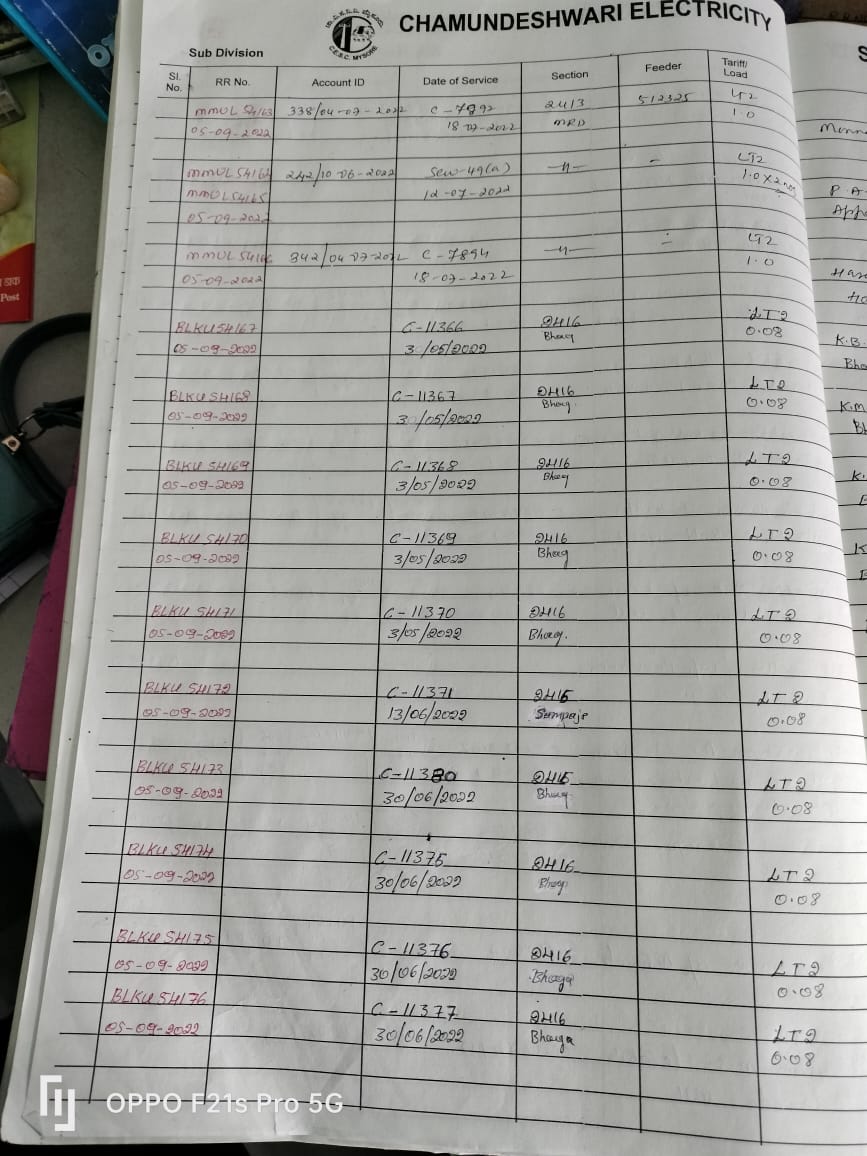 CHAMUNDESHWARI ELECTRICITY
C.E.S.C. MYSORE
Sub Division
Sl. No. RR No. Account ID Date of Service Section Feeder Tariff/ Load
MMUL 54163 338/04-07-2022 C-7892 2413 512325 LT2
05-09-2022 18-07-2022 MRD 1.0
MMUL 54164 242/10-06-2022 Sew-49(a) -11- - LT2
MMUL 54165 12-07-2022 1.0 x 2
05-09-2022
MMUL 54166 342/04-07-2022 C-7894 -11- LT2
05-09-2022 18-07-2022 1.0
BLKU 54167 C-11366 2416 LT2
05-09-2022 3 /05/2022 Bhag 0.08
BLKU 54168 C-11367 2416 LT2
05-09-2022 3 /05/2022 Bhag. 0.08
BLKU 54169 C-11368 2416 LT2
05-09-2022 3/05/2022 Bhag 0.08
BLKU 54170 C-11369 2416 LT2
05-09-2022 3/05/2022 Bhag 0.08
BLKU 54171 C-11370 2416 LT2
05-09-2022 3/05/2022 Bhag. 0.08
BLKU 54172 C-11371 2415 LT2
05-09-2022 13/06/2022 Sampaje 0.08
BLKU 54173 C-11380 LT2
05-09-2022 30/06/2022 Bhag 0.08
BLKU 54174 C-11375 2416 LT2
05-09-2022 30/06/2022 Bhag 0.08
BLKU 54175 C-11376 2416 LT2
05-09-2022 30/06/2022 Bhaga 0.08
BLKU 54176 C-11377 2416 LT2
05-09-2022 30/06/2022 Bhaga 0.08
K.B.
K.M
डाक
Post
OPPO F21s Pro 5G